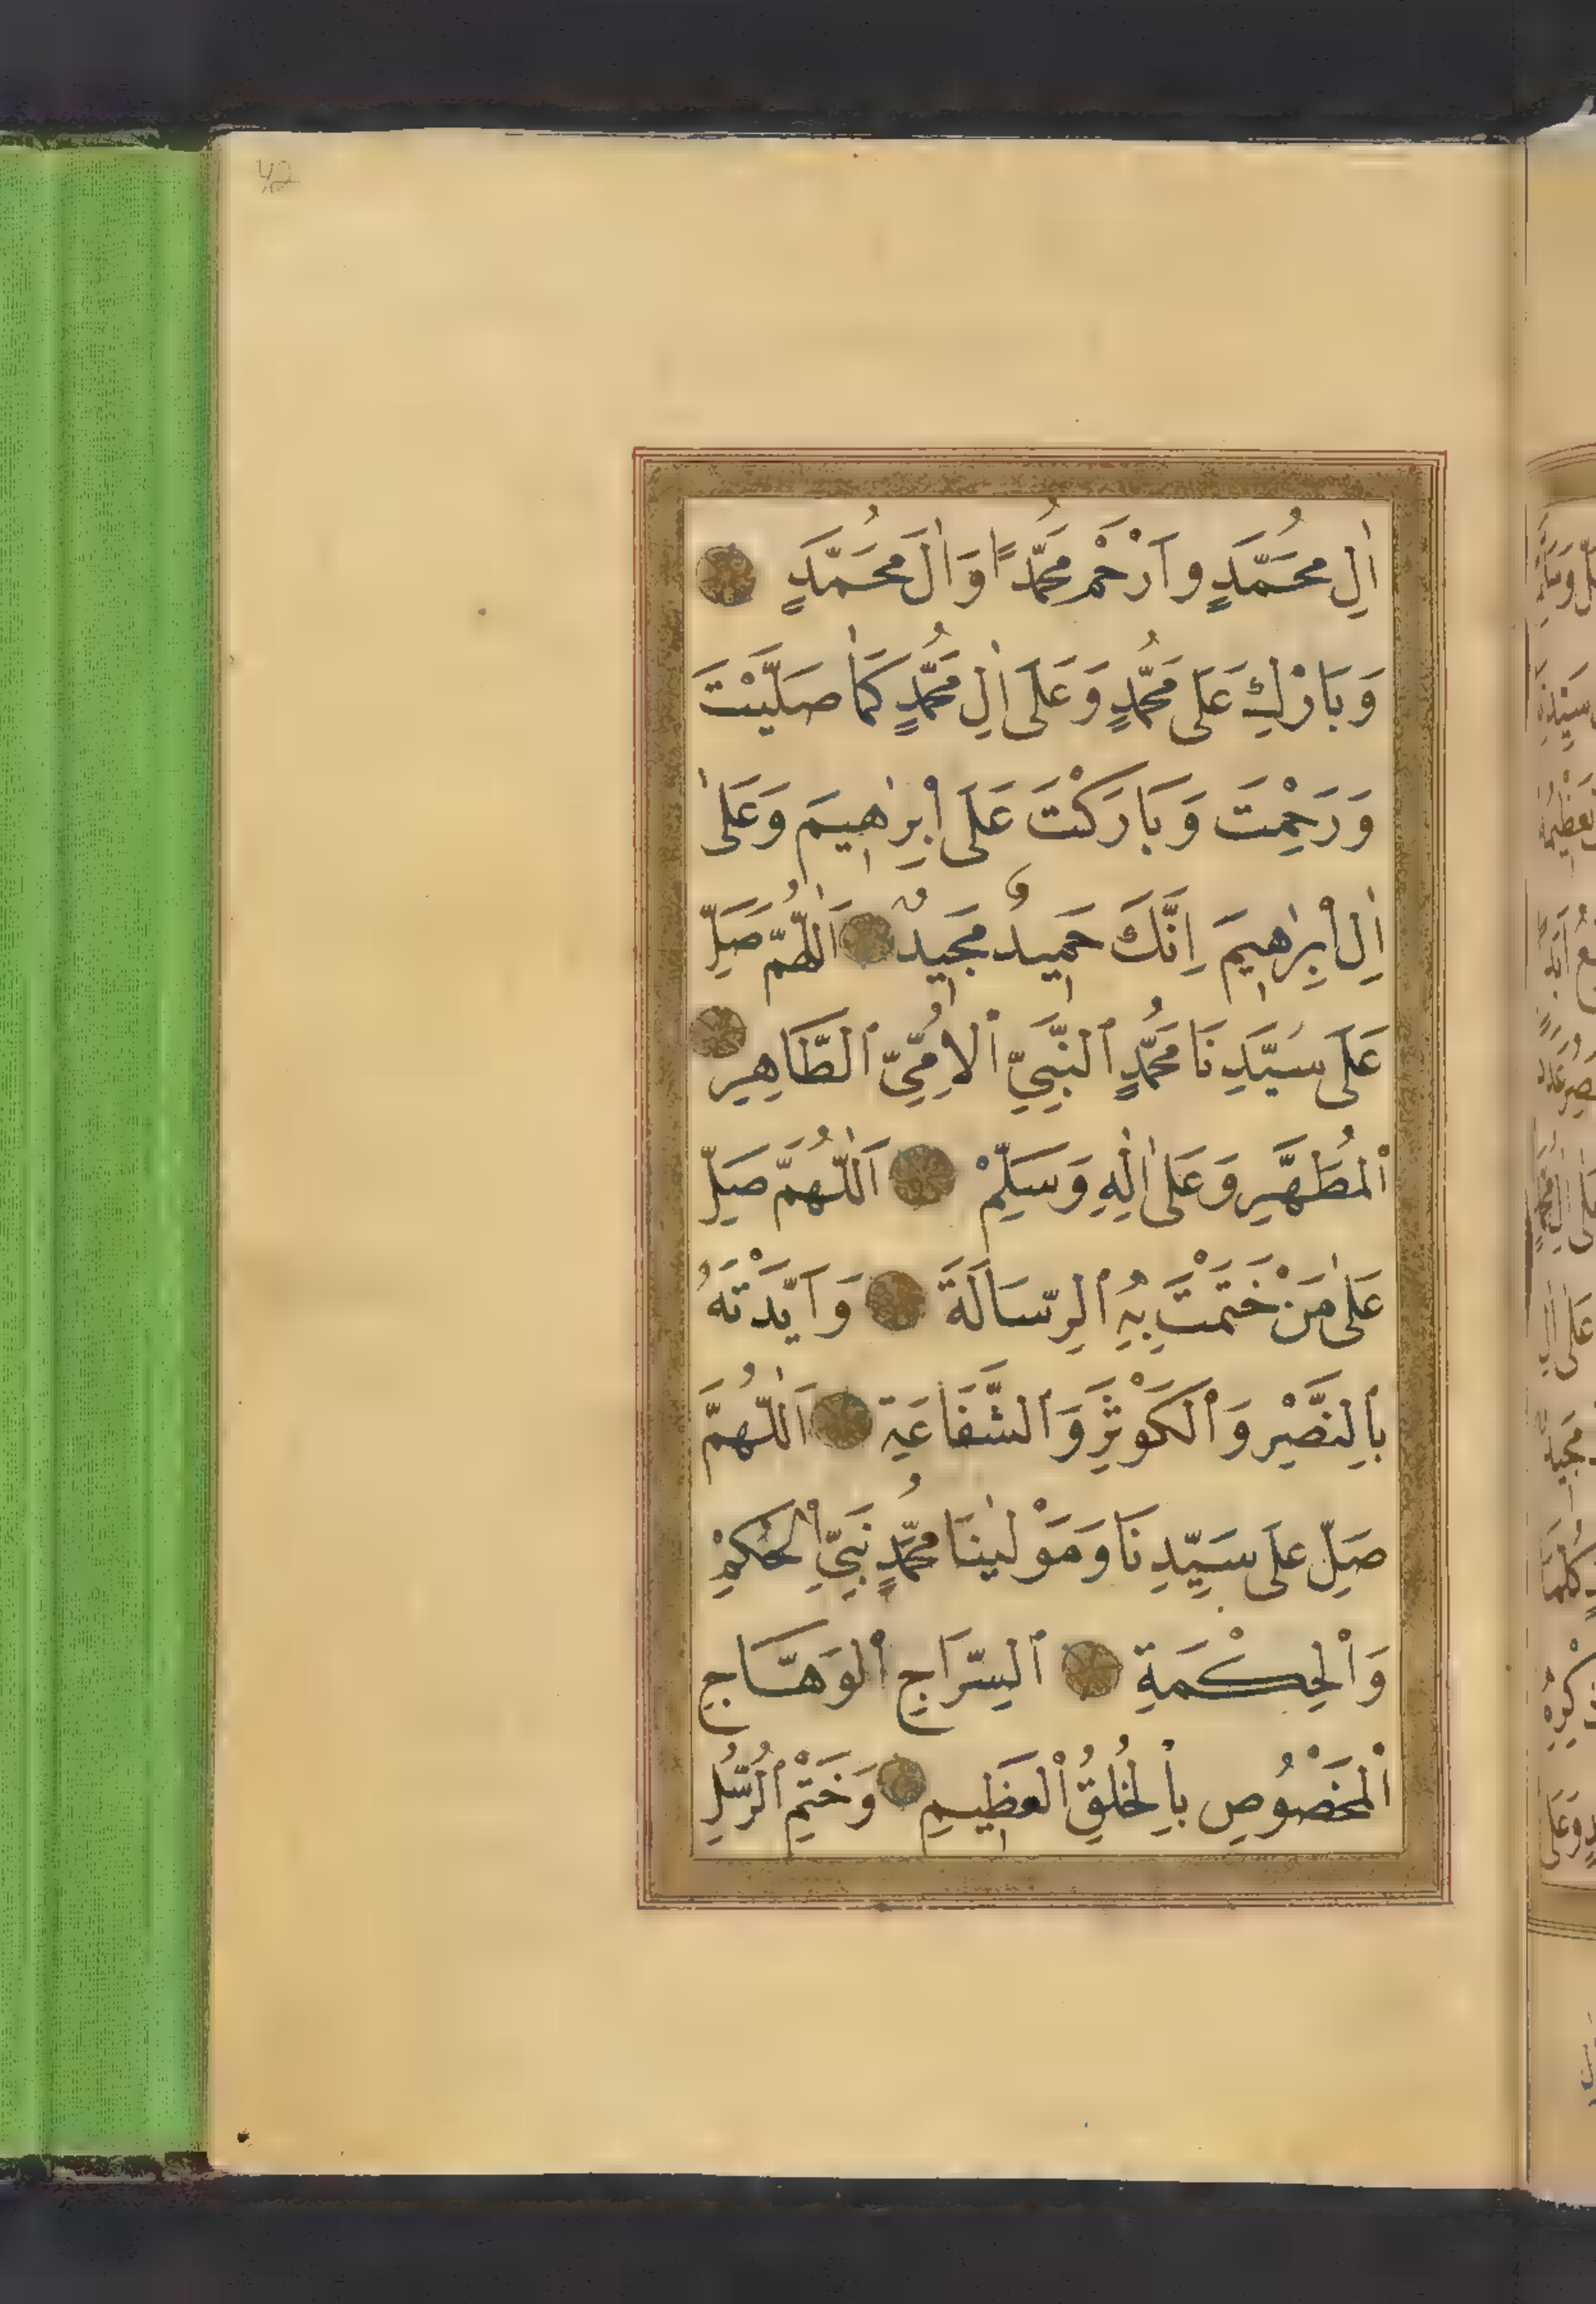 اٰلِ مُحَمَّدٍ وَارْحَمْ مُحَمَّدًا وَاٰلَ مُحَمَّدٍ
وَبَارِكْ عَلَى مُحَمَّدٍ وَعَلَى اٰلِ مُحَمَّدٍ كَمَا صَلَّيْتَ
وَرَحِمْتَ وَبَارَكْتَ عَلَى اِبْرٰهِيمَ وَعَلٰى
اٰلِ اِبْرٰهِيمَ اِنَّكَ حَمِيدٌ مَجِيدٌ اَللّٰهُمَّ صَلِّ
عَلَى سَيِّدِنَا مُحَمَّدٍ ٱلنَّبِيِّ ٱلاُمِّيِّ ٱلطَّاهِرِ
ٱلْمُطَهَّرِ وَعَلَى اٰلِهِ وَسَلِّمْ اَللّٰهُمَّ صَلِّ
عَلٰى مَنْ خَتَمْتَ بِهِ ٱلرِّسَالَةَ وَاَيَّدْتَهُ
بِالنَّصْرِ وَٱلْكَوْثَرِ وَٱلشَّفَاعَةِ اَللّٰهُمَّ
صَلِّ عَلَى سَيِّدِنَا وَمَوْلٰينَا مُحَمَّدٍ نَبِيِّ ٱلْحُكْمِ
وَٱلْحِكْمَةِ ٱلسِّرَاجِ ٱلْوَهَّاجِ
ٱلْمَخْصُوصِ بِالْخُلُقِ ٱلْعَظِيمِ وَخَتْمِ ٱلرُّسُلِ